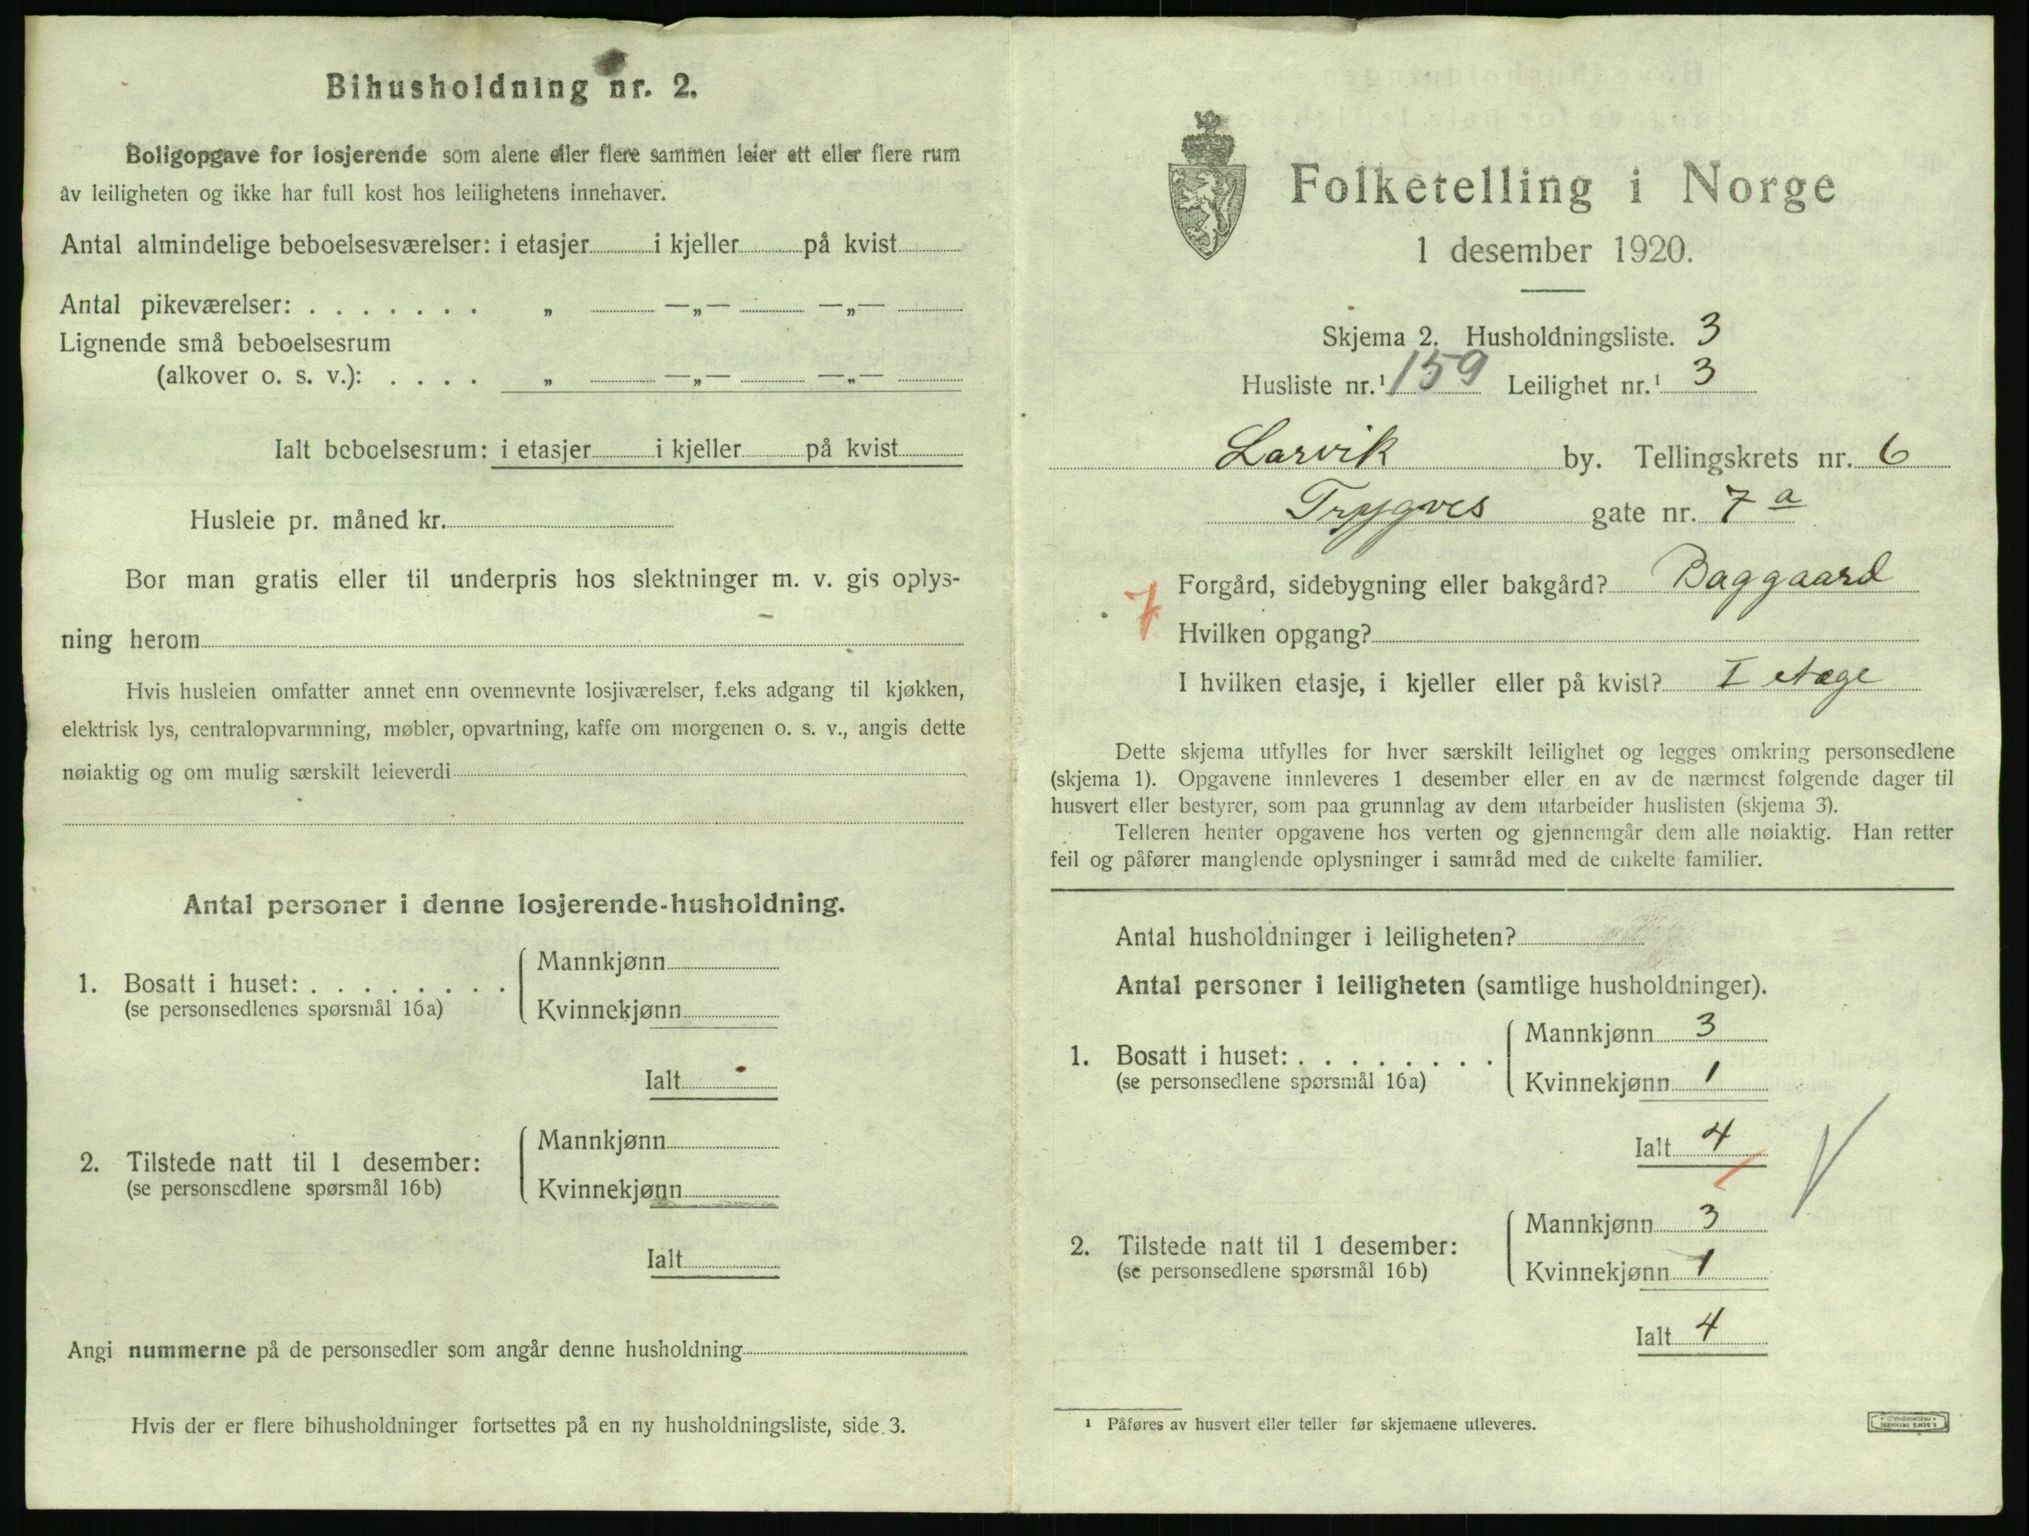 Bihusholdning nr. 2.
Boligopgave for losjerende som alene eller flere sammen leier ett eller flere rum
av leiligheten og ikke har full kost hos leilighetens innehaver.
Antal almindelige beboelsesværelser: i etasjer i kjeller på kvist
Antal pikeværelser: . . . . . . . „ —„— —„—
Lignende små beboelsesrum
(alkover o. s. v.): . . . . „ —„— —„—
Ialt beboelsesrum: i etasjer i kjeller på kvist
Husleie pr. måned kr.
Bor man gratis eller til underpris hos slektninger m. v. gis oplys-
ning herom
Hvis husleien omfatter annet enn ovennevnte losjiværelser, f.eks adgang til kjøkken,
elektrisk lys, centralopvarmning, møbler, opvartning, kaffe om morgenen o. s. v., angis dette
nøiaktig og om mulig særskilt leieverdi
Antal personer i denne losjerende-husholdning.
1. Bosatt i huset: . . . . . . . . Mannkjønn
(se personsedlenes spørsmål 16a) Kvinnekjønn
Ialt
2. Tilstede natt til 1 desember: Mannkjønn
(se personsedlene spørsmål 16b) Kvinnekjønn
Ialt
Angi nummerne på de personsedler som angår denne husholdning
Hvis der er flere bihusholdninger fortsettes på en ny husholdningsliste, side 3.
Folketelling i Norge
1 desember 1920.
Skjema 2. Husholdningsliste. 3
Husliste nr.¹ 159 Leilighet nr.¹ 3
Larvik by. Tellingskrets nr. 6
Trygves gate nr. 7 a
7 Forgård, sidebygning eller bakgård? Baggaard
Hvilken opgang?
I hvilken etasje, i kjeller eller på kvist? I etage
Dette skjema utfylles for hver særskilt leilighet og legges omkring personsedlene
(skjema 1). Opgavene innleveres 1 desember eller en av de nærmest følgende dager til
husvert eller bestyrer, som paa grunnlag av dem utarbeider huslisten (skjema 3).
Telleren henter opgavene hos verten og gjennemgår dem alle nøiaktig. Han retter
feil og påfører manglende oplysninger i samråd med de enkelte familier.
Antal husholdninger i leiligheten?
Antal personer i leiligheten (samtlige husholdninger).
1. Bosatt i huset: . . . . . . . . Mannkjønn 3
(se personsedlene spørsmål 16a) Kvinnekjønn 1
Ialt 4
2. Tilstede natt til 1 desember: Mannkjønn 3
(se personsedlene spørsmål 16b) Kvinnekjønn 1
Ialt 4
¹ Påføres av husvert eller teller før skjemaene utleveres.